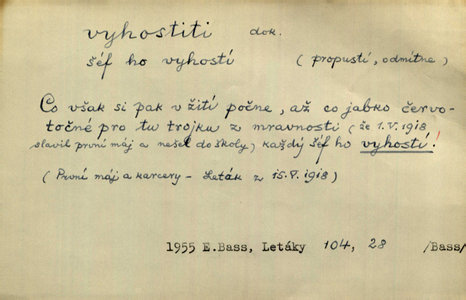 vyhostiti dok.
šéf ho vyhostí (propustí, odmítne)
Co však si pak v žití počne, až co jabko červo-
točné pro tu trojku z mravností (že 1.V.1918
slavil první máj a nešel do školy) každý šéf ho vyhostí!
(První máj a karcery - Leták z 15.V.1918)
1955 E.Bass, Letáky 104, 28 /Bass/